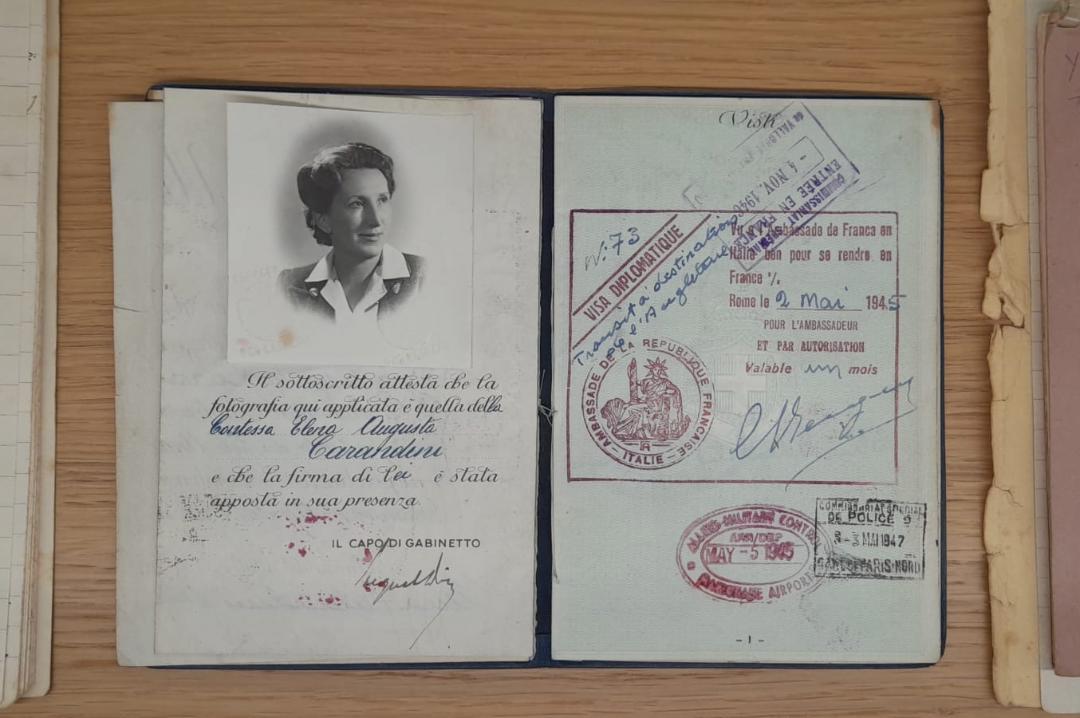 Il sottoscritto attesta che la
fotografia qui applicata è quella della
Contessa Elena Augusta
Carandini
e che la firma di lei è stata
apposta in sua presenza
IL CAPO DI GABINETTO
Visti
COMMISSARIAT SPÉCIAL
- 4 NOV. 1946
ENTRÉE EN FRANCE
N: 73
VISA DIPLOMATIQUE
Transit à destination
de l'Angleterre
Vu à l'Ambassade de France en
Italie bon pour se rendre en
France %.
Rome le 2 Mai 1945
POUR L'AMBASSADEUR
ET PAR AUTORISATION
Valable un mois
AMBASSADE DE LA REPUBLIQUE FRANÇAISE
- ITALIE -
ALLIED MILITARY CONTROL
MAY - 5 1945
AIRPORT
COMMISSARIAT SPECIAL
DE POLICE
3 MAI 1947
GARE DE PARIS-NORD
- 1 -